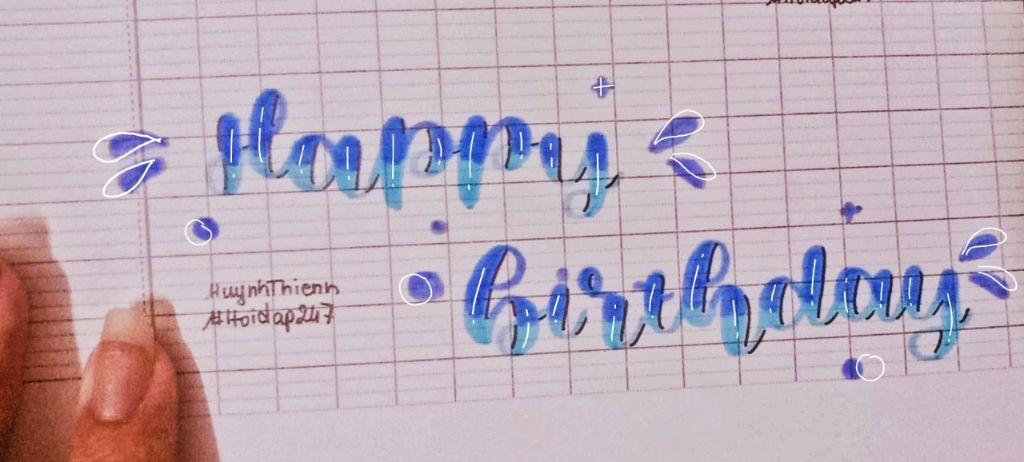 Happy
birthday
HuynhThienn
#Hoidap247